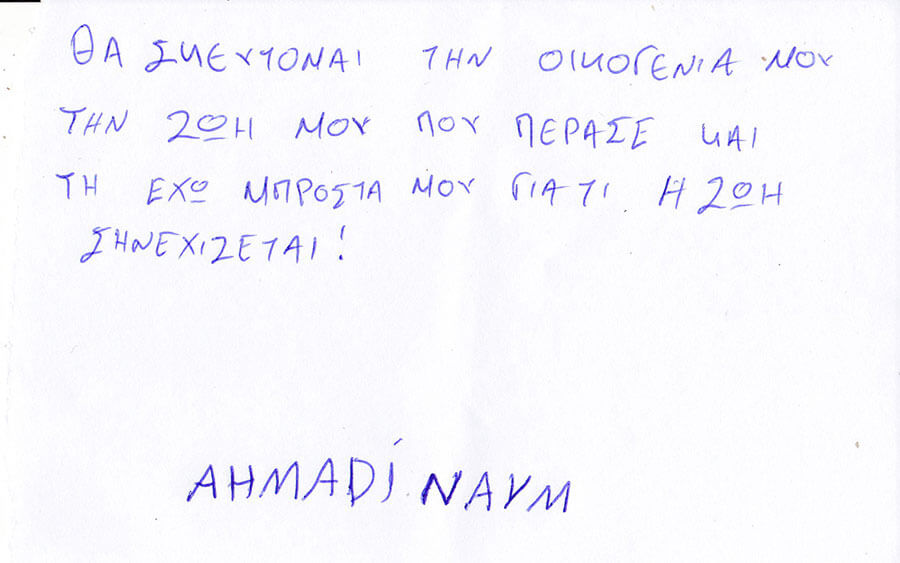 ΘΑ ΣΚΕΥΤΟΜΑΙ ΤΗΝ ΟΙΚΟΓΕΝΙΑ ΜΟΥ
ΤΗΝ ΖΩΗ ΜΟΥ ΠΟΥ ΠΕΡΑΣΕ ΚΑΙ
ΤΗ ΕΧΩ ΜΠΡΟΣΤΑ ΜΟΥ ΓΙΑΤΙ Η ΖΩΗ
ΣΗΝΕΧΙΖΕΤΑΙ!
AHMADİ NAYM